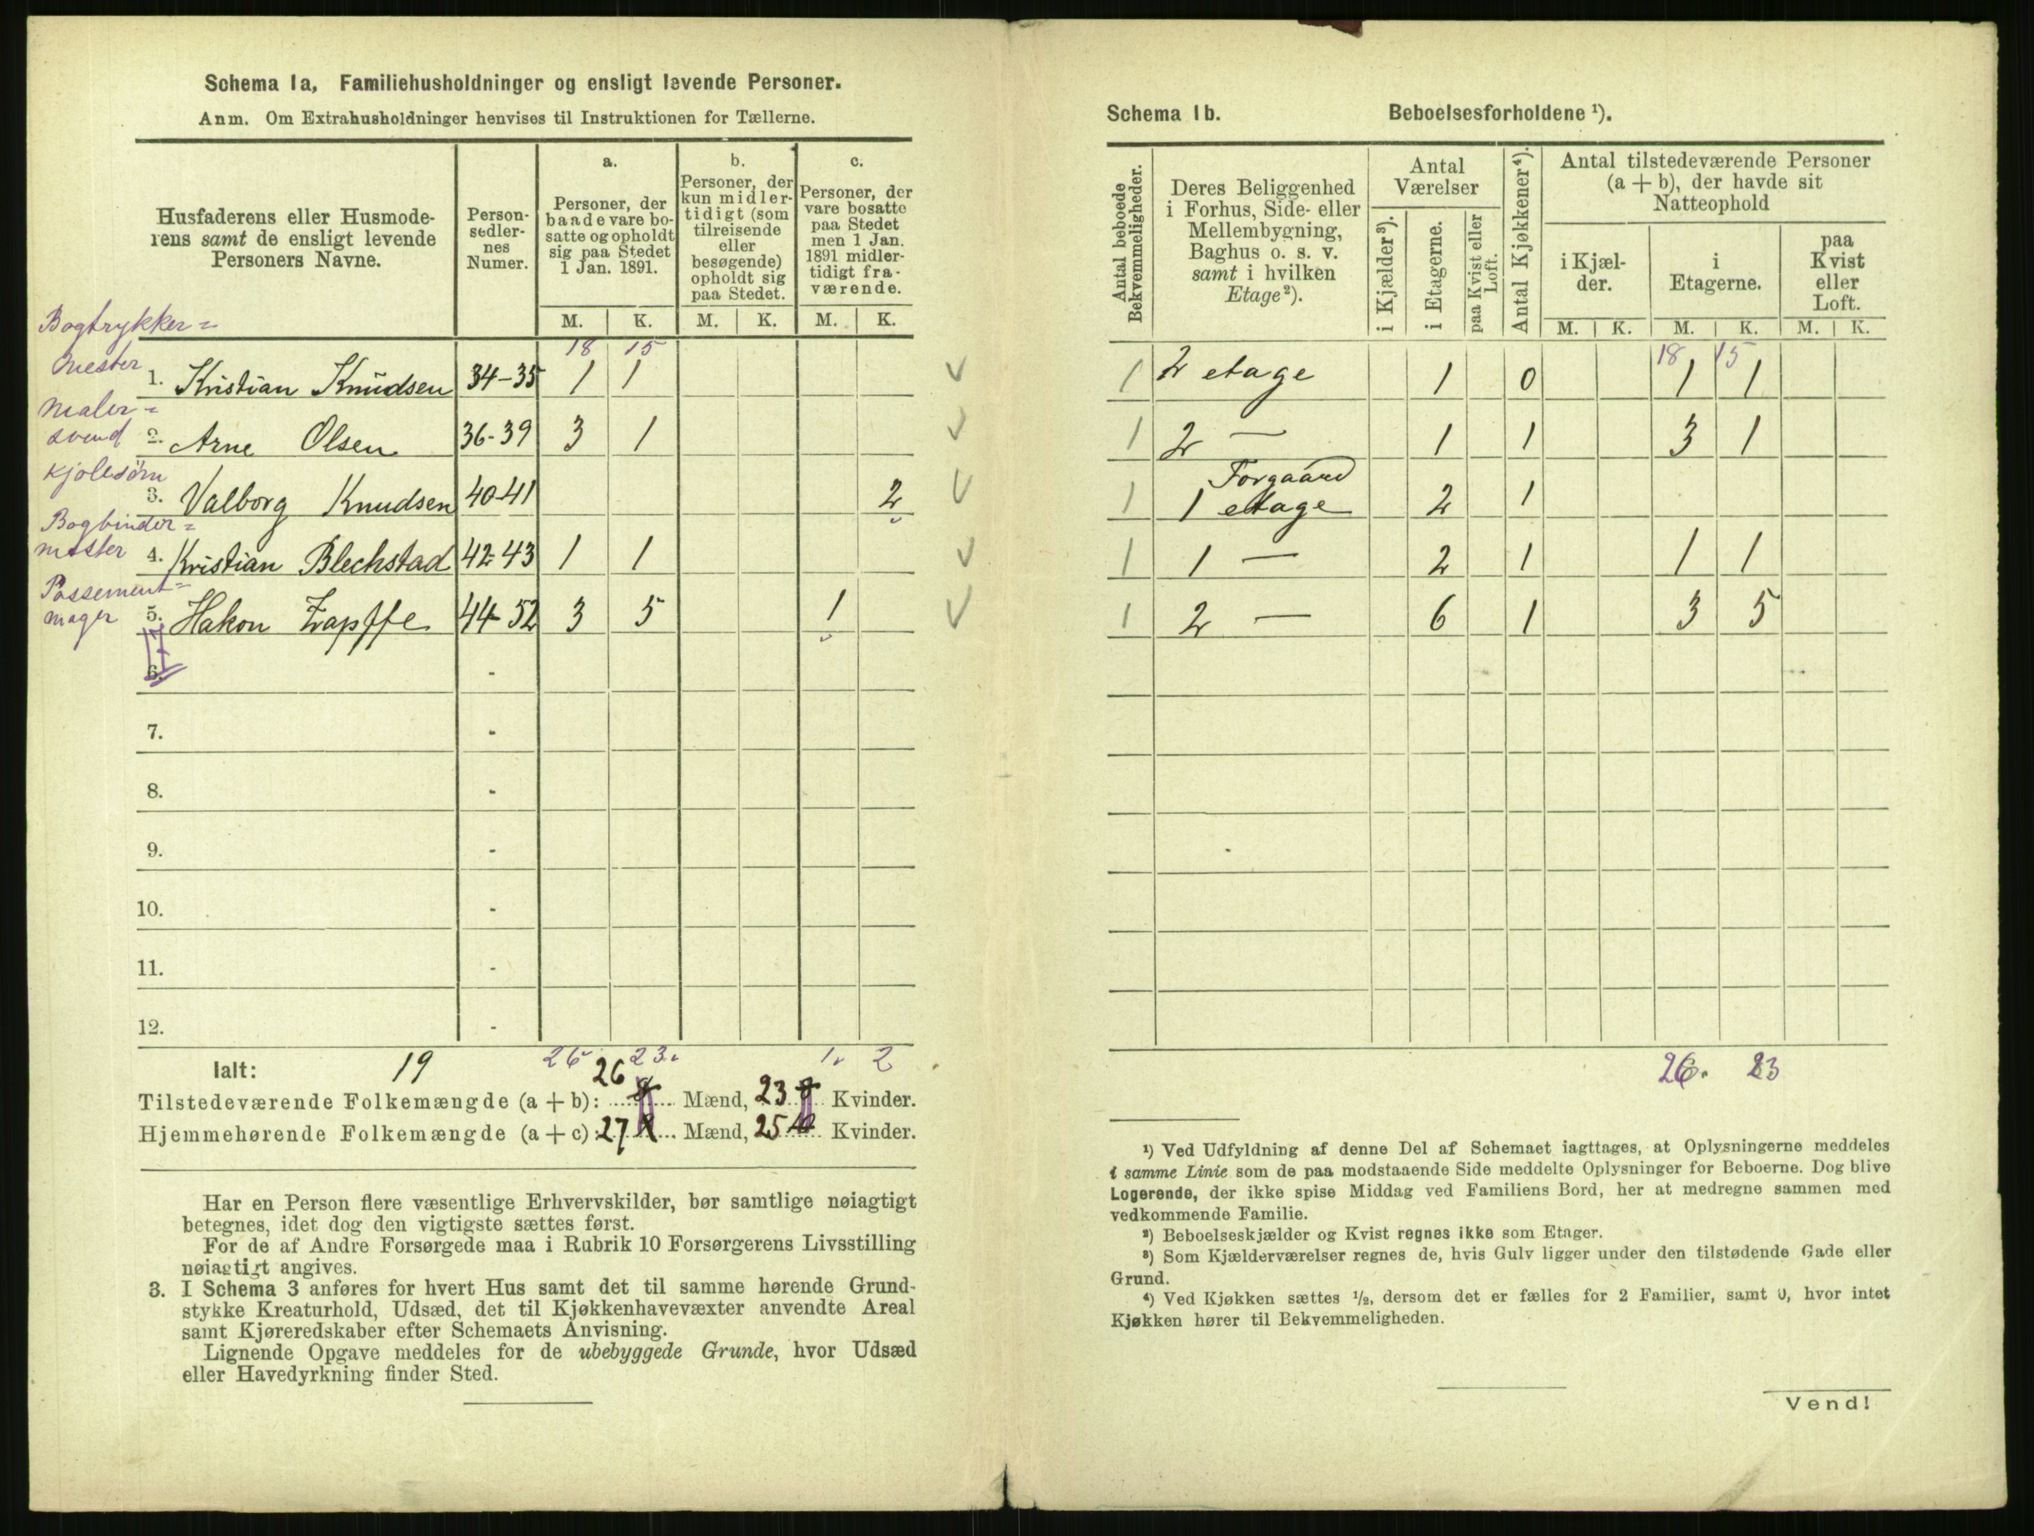 Schema 1a, Familiehusholdninger og ensligt levende Personer.
Anm. Om Extrahusholdninger henvises til Instruktionen for Tællerne.
Husfaderens eller Husmode-
rens samt de ensligt levende
Personers Navne.
Person-
sedler-
nes
Numer.
a.
Personer, der
baade vare bo-
satte og opholdt
sig paa Stedet
1 Jan. 1891.
b.
Personer, der
kun midler-
tidigt (som
tilreisende
eller
besøgende)
opholdt sig
paa Stedet.
c.
Personer, der
vare bosatte
paa Stedet
men 1 Jan.
1891 midler-
tidigt fra-
værende.
M. K. M. K. M. K.
18 15
Bogtrykker=
mester
1. Kristian Knudsen 34-35 1 1
Maler=
svend
2. Arne Olsen 36-39 3 1
Kjolesøm
3. Valborg Knudsen 40-41 2
Bogbinder=
mester
4. Kristian Blechstad 42-43 1 1
Possement=
mager
5. Hakon Zapffe 44-52 3 5 1
6. -
7. -
8. -
9. -
10. -
11. -
12. -
Ialt: 19 26 23. 1. 2
Tilstedeværende Folkemængde (a + b): 26 Mænd, 23 Kvinder.
Hjemmehørende Folkemængde (a + c): 27 Mænd, 25 Kvinder.
Har en Person flere væsentlige Erhvervskilder, bør samtlige nøiagtigt
betegnes, idet dog den vigtigste sættes først.
For de af Andre Forsørgede maa i Rubrik 10 Forsørgerens Livsstilling
nøiagtigt angives.
3. I Schema 3 anføres for hvert Hus samt det til samme hørende Grund-
stykke Kreaturhold, Udsæd, det til Kjøkkenhavevæxter anvendte Areal
samt Kjøreredskaber efter Schemaets Anvisning.
Lignende Opgave meddeles for de ubebyggede Grunde, hvor Udsæd
eller Havedyrkning finder Sted.
Schema 1b. Beboelsesforholdene ¹).
Antal beboede
Bekvemmeligheder.
Deres Beliggenhed
i Forhus, Side- eller
Mellembygning,
Baghus o. s. v.
samt i hvilken
Etage²).
Antal
Værelser
i Kjælder³).
i Etagerne.
paa Kvist eller
Loft.
Antal Kjøkkener⁴).
Antal tilstedeværende Personer
(a + b), der havde sit
Natteophold
i Kjæl-
der.
i
Etagerne.
paa
Kvist
eller
Loft.
M. K. M. K. M. K.
18 15
1 2 etage 1 0 1 1
1 2 — 1 1 3 1
Forgaard
1 1 etage 2 1
1 1 — 2 1 1 1
1 2 — 6 1 3 5
26. 23
¹) Ved Udfyldning af denne Del af Schemaet iagttages, at Oplysningerne meddeles
i samme Linie som de paa modstaaende Side meddelte Oplysninger for Beboerne. Dog blive
Logerende, der ikke spise Middag ved Familiens Bord, her at medregne sammen med
vedkommende Familie.
²) Beboelseskjælder og Kvist regnes ikke som Etager.
³) Som Kjælderværelser regnes de, hvis Gulv ligger under den tilstødende Gade eller
Grund.
⁴) Ved Kjøkken sættes ½, dersom det er fælles for 2 Familier, samt 0, hvor intet
Kjøkken hører til Bekvemmeligheden.
Vend!